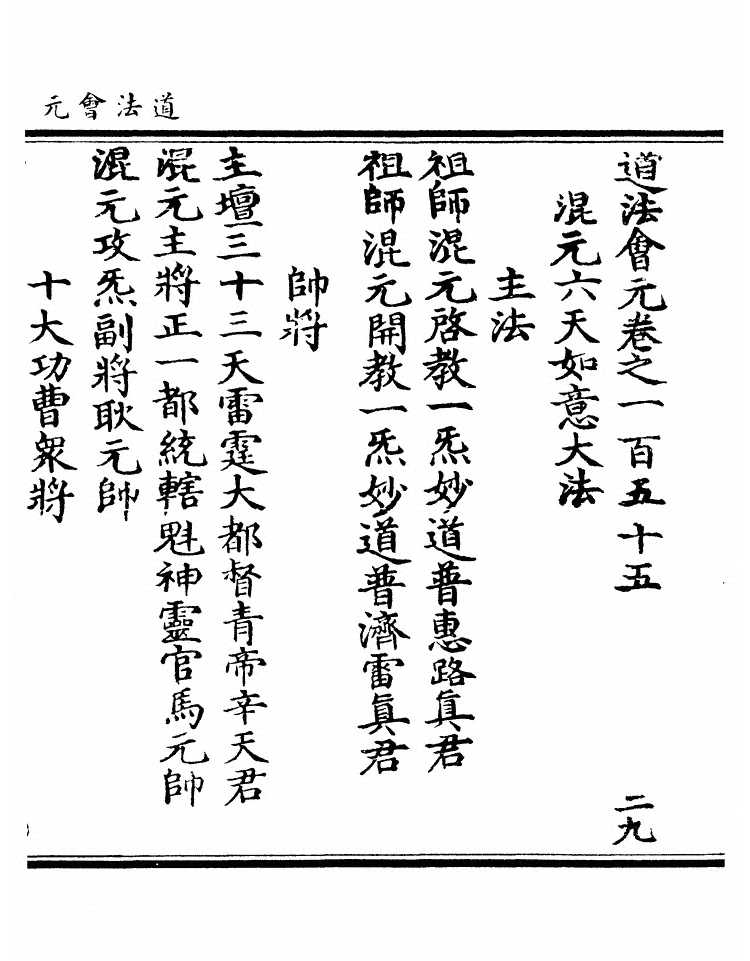 道法會元
道法會元卷之一百五十五 二九
混元六天如意大法
主法
祖師混元啓教一炁妙道普惠路眞君
祖師混元開教一炁妙道普濟雷眞君
帥將
主壇三十三天雷霆大都督青帝辛天君
混元主將正一都統轄魁神靈官馬元帥
混元攻炁副將耿元帥
十大功曹衆將